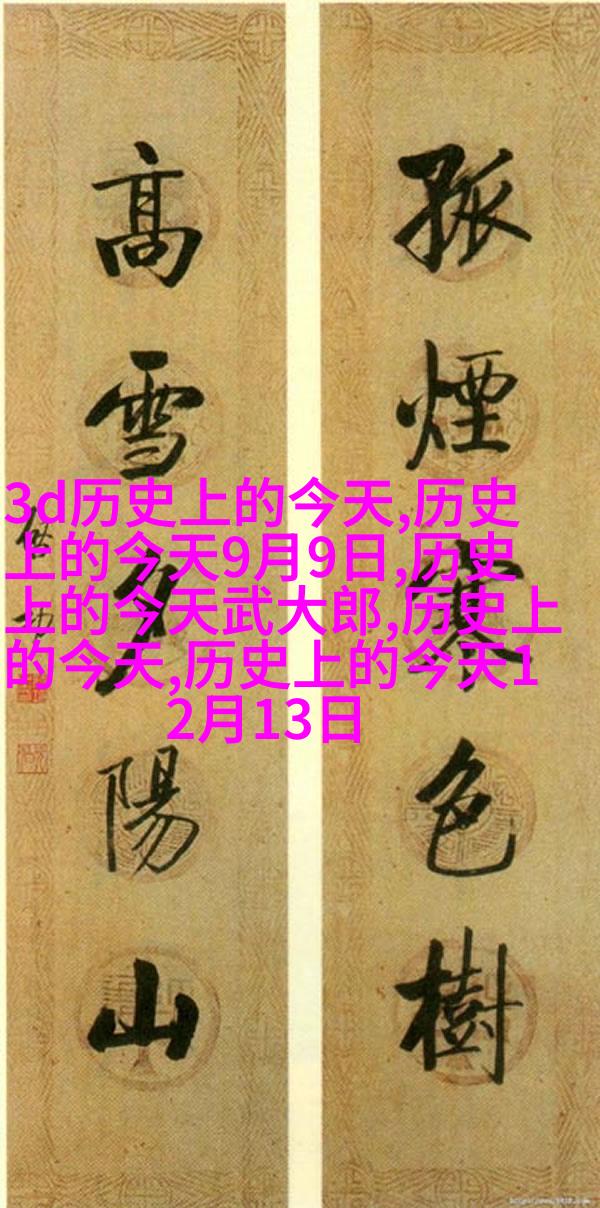 孤煙寒色樹
高雪夕陽山
啓功
3d历史上的今天,历史
上的今天9月9日,历史
上的今天武大郎,历史上
的今天,历史上的今天1
2月13日